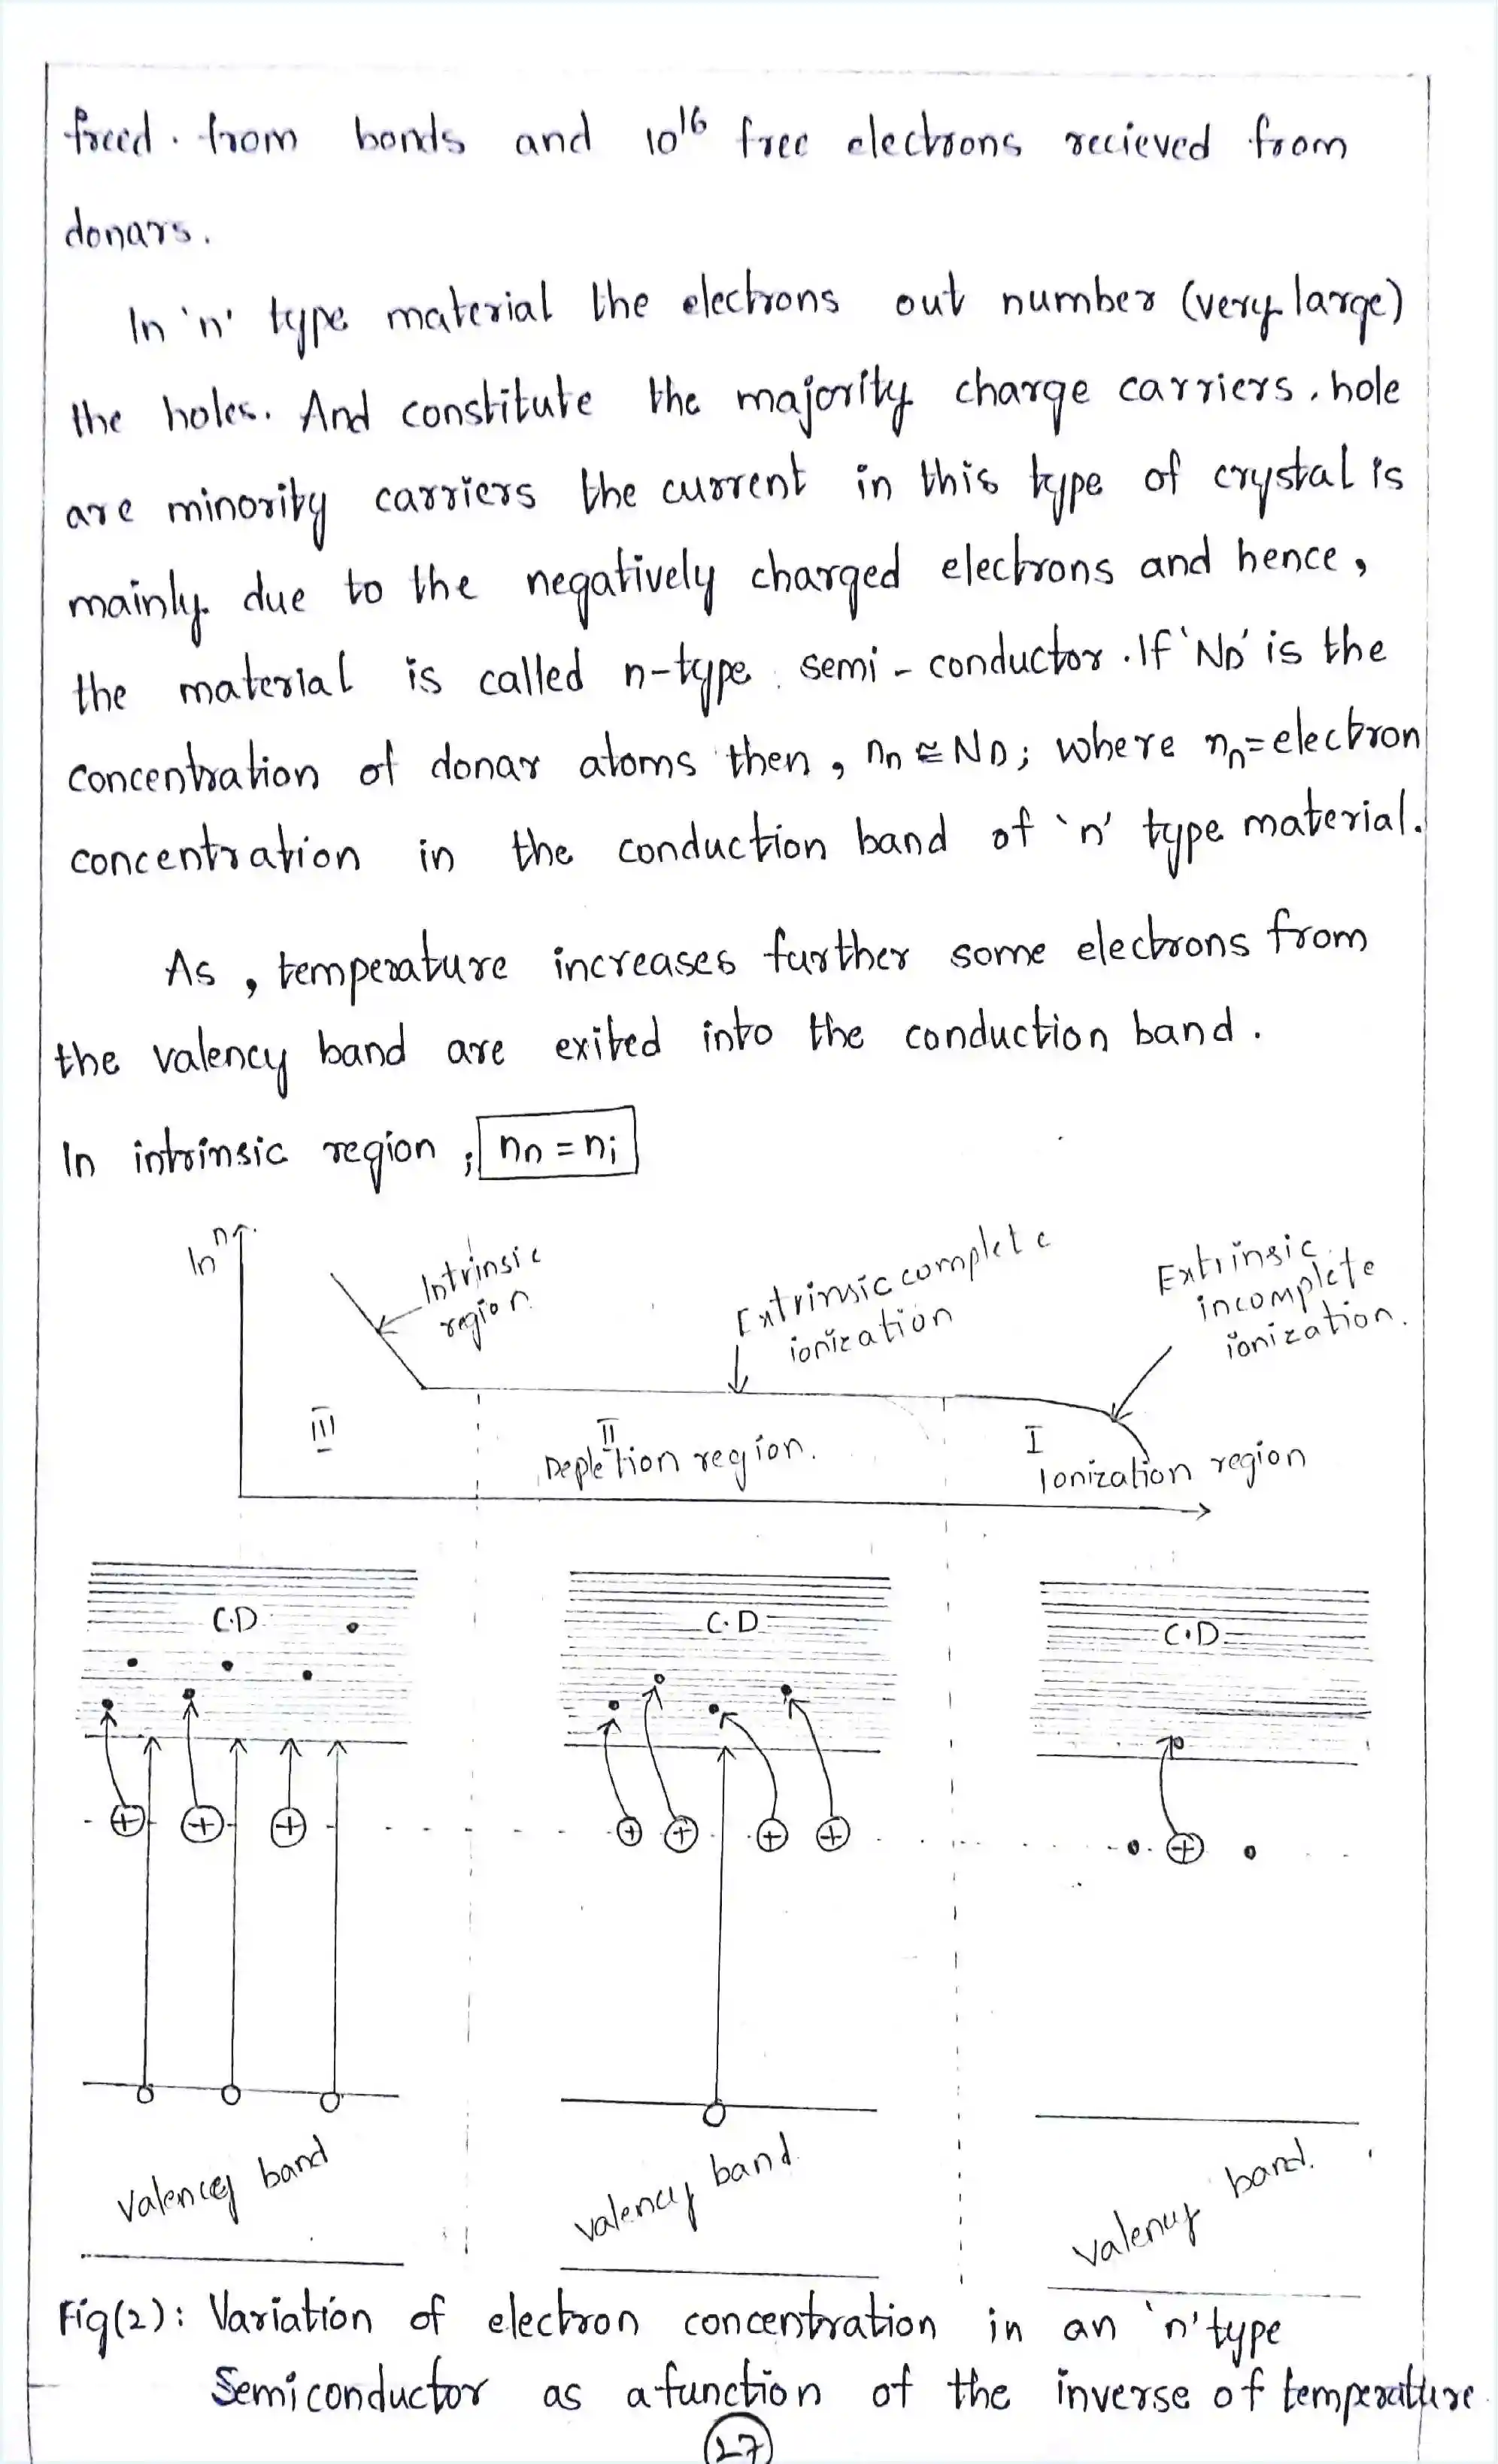 freed. from bonds and 10¹⁶ free electrons recieved from
donars.
In 'n' type material the electrons out number (very large)
the holes. And constitute the majority charge carriers. hole
are minority carriers the current in this type of crystal is
mainly due to the negatively charged electrons and hence,
the material is called n-type semi-conductor. If 'ND' is the
concentration of donar atoms then, nn ≅ ND; where nn = electron
concentration in the conduction band of 'n' type material.
As, temperature increases further some electrons from
the valency band are exited into the conduction band.
In intrinsic region; nn = ni
ln n
Intrinsic
region
Extrinsic complete
ionization
Extrinsic
incomplete
ionization.
III
II
Depletion region.
I
Ionization region
C.D
C.D
C.D
+ + + + + + + +
Valencey band
valency band
valency band.
Fig(2): Variation of electron concentration in an 'n' type
Semiconductor as a function of the inverse of temperature
27